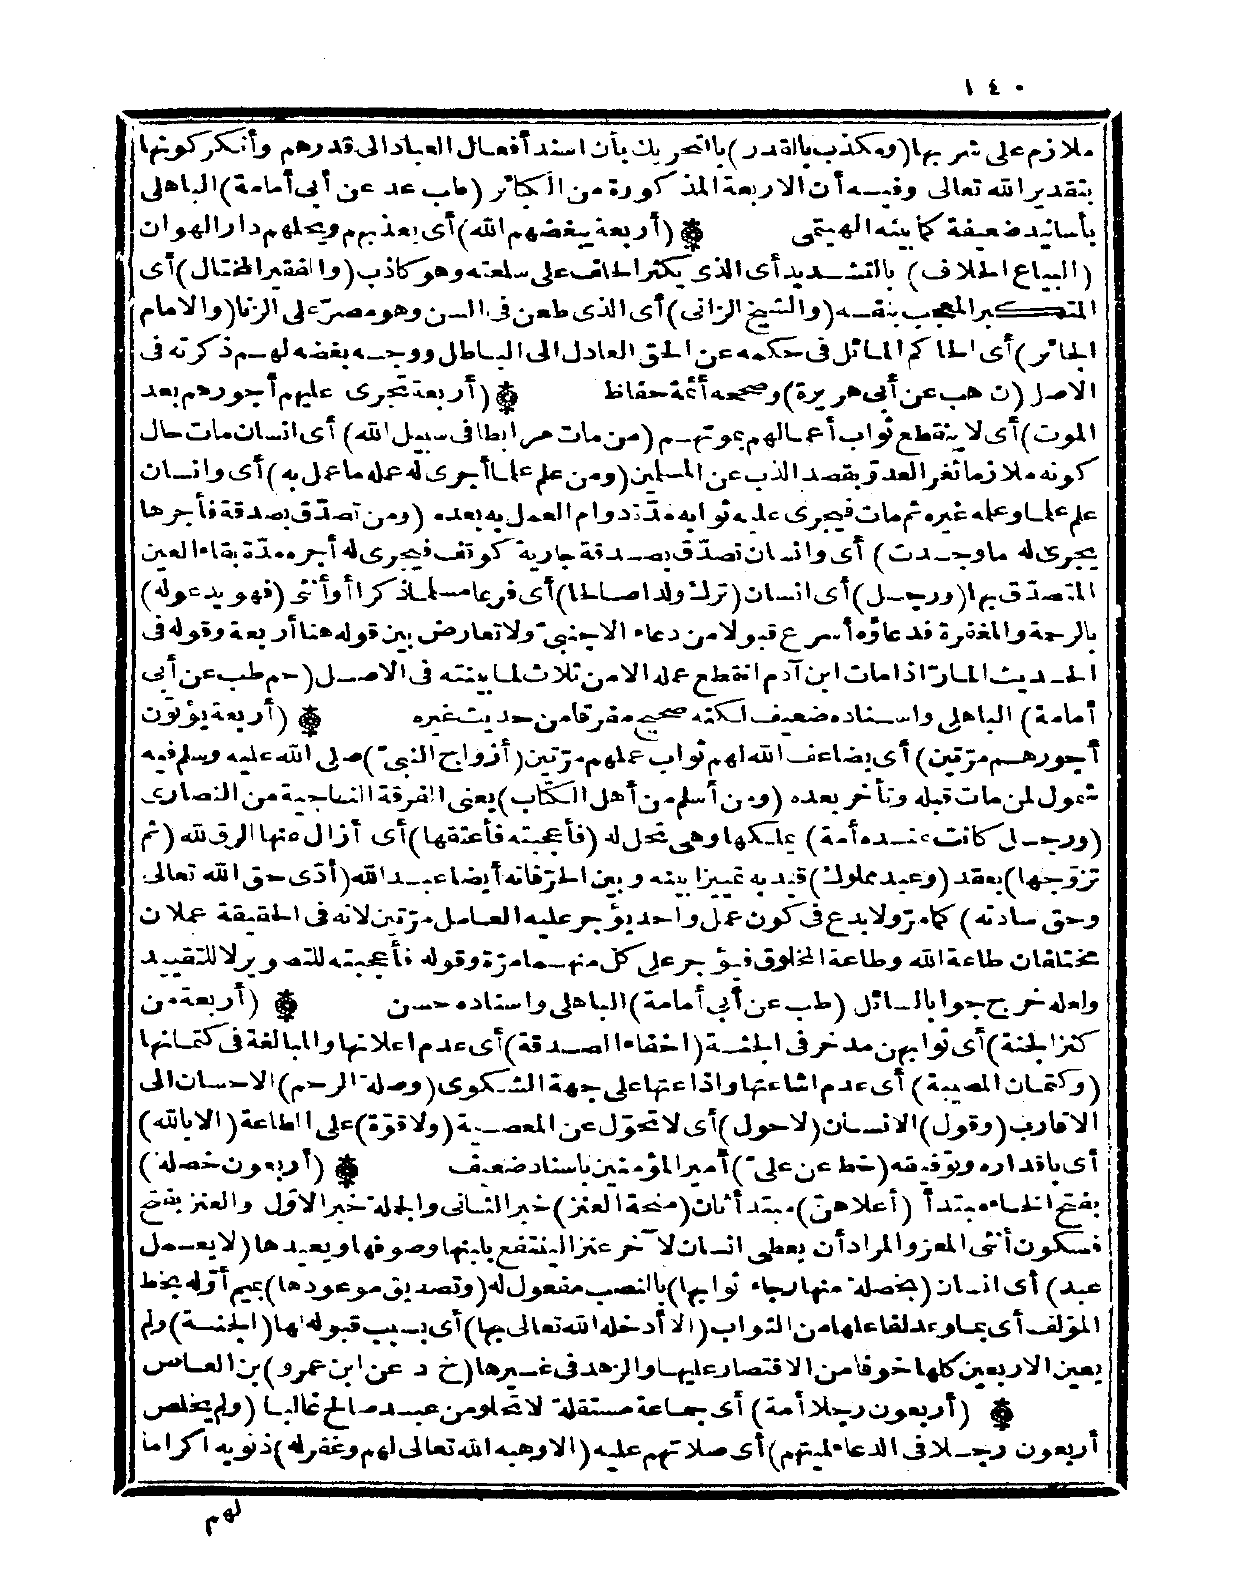 ١٤٠
ملازم على شربها (ومكذب بالقدر) بالتحريك بأن اسند أفعال العباد الى قدرهم وأنكر كونها
بتقدير الله تعالى وفيه أن الاربعة المذكورة من الكبائر (طب عد عن أبى أمامة) الباهلى
بأسانيد ضعيفة كما بينه الهيتمى ۞ (أربعة يبغضهم الله) أى يعذبهم ويحلهم دار الهوان
(البياع الحلاف) بالتشديد أى الذى يكثر الحلف على سلعته وهو كاذب (والفقير المختال) أى
المتكبر المعجب بنفسه (والشيخ الزانى) أى الذى طعن فى السن وهو مصرّ على الزنا (والامام
الجائر) أى الحاكم المائل فى حكمه عن الحق العادل الى الباطل ووجه بغضه لهم ذكرته فى
الاصل (ن هب عن أبى هريرة) وصححه أئمة حفاظ ۞ (أربعة تجرى عليهم أجورهم بعد
الموت) أى لا ينقطع ثواب أعمالهم بموتهم (من مات مرابطا فى سبيل الله) أى انسان مات حال
كونه ملازما ثغر العدو بقصد الذب عن المسلمين (ومن علم علما أجرى له عمله ما عمل به) أى وانسان
علم علما وعلمه غيره ثم مات فيجرى عليه ثوابه مدّة دوام العمل به بعده (ومن تصدّق بصدقة فأجرها
يجرى له ما وجدت) أى وانسان تصدّق بصدقة جارية كوقف فيجرى له أجره مدّة بقاء العين
المتصدّق بها (ورجل) أى انسان (ترك ولدا صالحا) أى فرعا مسلما ذكرا أو أنثى (فهو يدعو له)
بالرحمة والمغفرة فدعاؤه أسرع قبولا من دعاء الاجنبىّ ولا تعارض بين قوله هنا أربعة وقوله فى
الحديث المارّ اذا مات ابن آدم انقطع عمله الا من ثلاث لما بينته فى الاصل (حم طب عن أبى
أمامة) الباهلى واسناده ضعيف لكنه صحيح مفرقا من حديث غيره ۞ (أربعة يؤتون
أجورهم مرّتين) أى يضاعف الله لهم ثواب عملهم مرّتين (أزواج النبىّ) صلى الله عليه وسلم فيه
شمول لمن مات قبله وتأخر بعده (ومن أسلم من أهل الكتاب) يعنى الفرقة الناجية من النصارى
(ورجل كانت عنده أمة) يملكها وهى تحل له (فأعجبته فأعتقها) أى أزال عنها الرق لله (ثم
تزوّجها) بعقد (وعبد مملوك) قيد به تمييزا بينه وبين الحرّ فانه أيضا عبد الله (أدّى حق الله تعالى
وحق سادته) كما مرّ ولا بدع فى كون عمل واحد يؤجر عليه العامل مرّتين لانه فى الحقيقة عملان
مختلفان طاعة الله وطاعة المخلوق فيؤجر على كل منهما مرّة وقوله فأعجبته للتصوير لا للتقييد
ولعله خرج جوابا لسائل (طب عن أبى أمامة) الباهلى واسناده حسن ۞ (أربعة من
كنز الجنة) أى ثوابهن مدخر فى الجنة (اخفاء الصدقة) أى عدم اعلانها والمبالغة فى كتمانها
(وكتمان المصيبة) أى عدم اشاعتها واذاعتها على جهة الشكوى (وصلة الرحم) الاحسان الى
الاقارب (وقول) الانسان (لا حول) أى لا تحوّل عن المعصية (ولا قوّة) على الطاعة (الا بالله)
أى باقداره وتوفيقه (خط عن علىّ) أمير المؤمنين باسناد ضعيف ۞ (أربعون خصلة)
بفتح الخاء مبتدأ (أعلاهنّ) مبتدأ ثان (منحة العنز) خبر الثانى والجملة خبر الاوّل والعنز بفتح
فسكون أنثى المعز والمراد أن يعطى انسان لآخر عنزا لينتفع بلبنها وصوفها ويعيدها (لا يعمل
عبد) أى انسان (بخصلة منها رجاء ثوابها) بالنصب مفعول له (وتصديق موعودها) بميم أوّله بخط
المؤلف أى بما وعد لفاعلها من الثواب (الا أدخله الله تعالى بها) أى بسبب قبوله لها (الجنة) ولم
يعين الاربعين كلها خوفا من الاقتصار عليها والزهد فى غيرها (خ د عن ابن عمرو) بن العاص
۞ (أربعون رجلا أمة) أى جماعة مستقلة لا تخلو من عبد صالح غالبا (ولم يخلص
أربعون رجلا فى الدعاء لميتهم) أى صلاتهم عليه (الا وهبه الله تعالى لهم وغفر له) ذنوبه اكراما
لهم